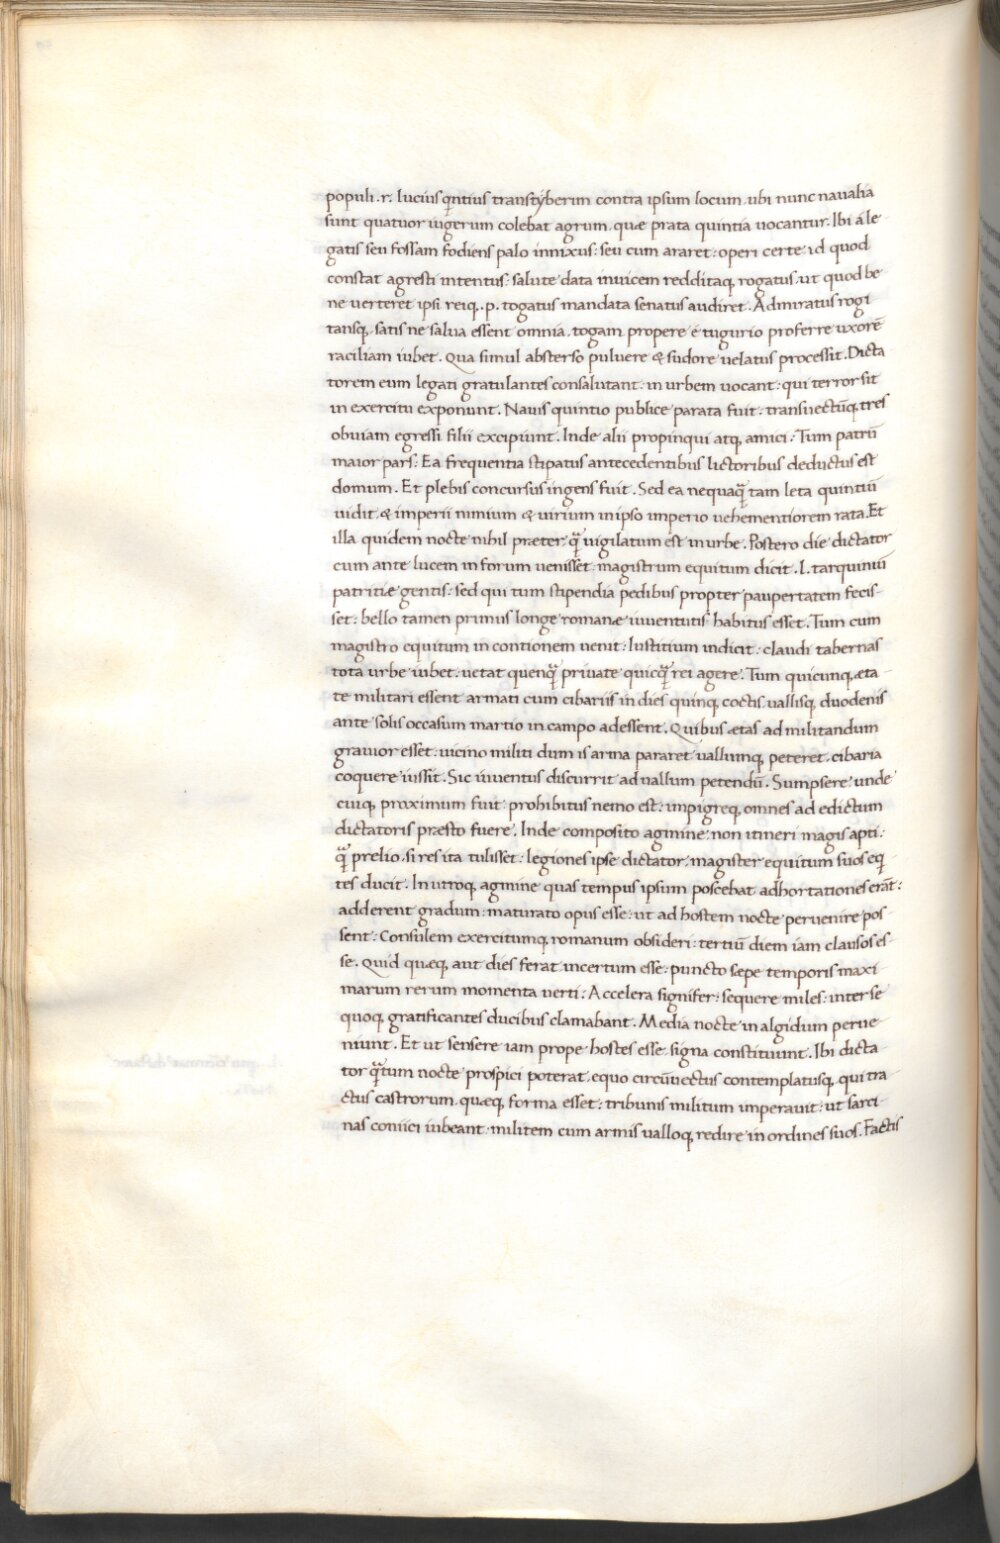 populi .r. lucius q̄ntius transtÿberim contra ipsum locum ubi nunc naualia
sunt quatuor iugerum colebat agrum quæ prata quintia uocantur. Ibi á le
gatis seu fossam fodiens palo innixus: seu cum araret: operi certe id quod
constat agresti intentus: salute data inuicem redditaq; rogatus ut quod be
ne uerteret ipsi reiq; .p. togatus mandata senatus audiret. Admiratus rogi
tansq; satis ne salua essent omnia togam propere é tugurio proferre uxorē
raciliam iubet. Qua simul absterso puluere & sudore uelatus processit. Dicta
torem eum legati gratulantes consalutant: in urbem uocant: qui terror sit
in exercitu exponunt. Nauis quintio publice parata fuit: transuectūq; tres
obuiam egressi filii excipiunt. Inde alii propinqui atq; amici: Tum patrū
maior pars: Ea frequentia stipatus antecedentibus lictoribus deductus est
domum. Et plebis concursus ingens fuit. Sed ea nequaq̄ tam leta quintiū
uidit & imperii nimium & uirum in ipso imperio uehementiorem rata. Et
illa quidem nocte nihil præter q̄ uigilatum est in urbe. Postero die dictator
cum ante lucem in forum uenisset magistrum equitum dicit .l. tarquiniū
patritiæ gentis: sed qui tum stipendia pedibus propter paupertatem fecis-
set: bello tamen primus longe romanæ iuuentutis habitus esset. Tum cum
magistro equitum in contionem uenit: Iustitium indicit: claudi tabernas
tota urbe iubet: uetat quenq̄ priuate quicq̄ rei agere. Tum quicunq; æta-
te militari essent armati cum cibariis in dies quinq; coctis uallisq; duodenis
ante solis occasum martio in campo adessent. Quibus ætas ad militandum
grauior esset: uicino militi dum is arma pararet uallumq; peteret cibaria
coquere iussit. Sic iuuentus discurrit ad uallum petendū. Sumpsere unde
cuiq; proximum fuit: prohibitus nemo est: impigreq; omnes ad edictum
dictatoris præsto fuere. Inde composito agmine non itineri magis apti:
q̄ prelio si res ita tulisset: legiones ipse dictator magister equitum suos eq̄
tes ducit. In utroq; agmine quas tempus ipsum poscebat adhortationes erāt:
adderent gradum: maturato opus esse: ut ad hostem nocte peruenire pos
sent: Consulem exercitumq; romanum obsideri: tertiū diem iam clausos es-
se. Quid quæq; aut dies ferat incertum esse: puncto sæpe temporis maxi
marum rerum momenta uerti: Accelera signifer: sequere miles: inter se
quoq; gratificantes ducibus clamabant. Media nocte in algidum perue
niunt. Et ut sensere iam prope hostes esse signa constituunt. Ibi dicta-
tor q̄tum nocte prospici poterat equo circūuectus contemplatusq; qui tra
ctus castrorum quæq; forma esset: tribunis militum imperauit: ut sarci
nas coniici iubeant militem cum armis ualloq; redire in ordines suos. Factis